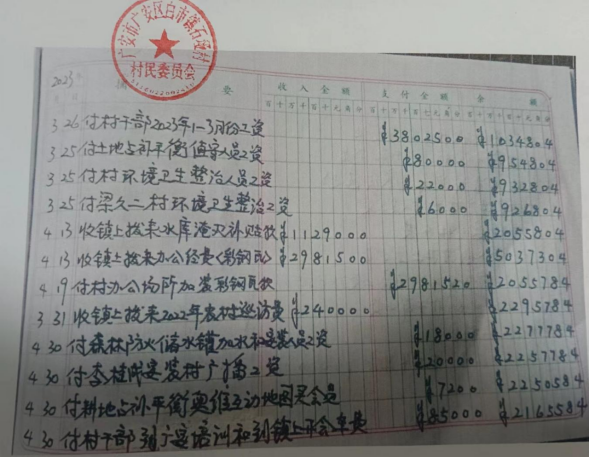 广安市广安区白市镇石垭村
村民委员会
2023
摘 要 收入金额 支付金额 余 额
百十万千百十元角分 百十万千百十元角分 百十万千百十元角分
3 26 付村干部2023年1-3月份工资 ¥3802500 ¥1034804
3 25 付土地占补平衡值守人员工资 ¥80000 ¥954804
3 25 付村环境卫生整治人员工资 ¥22000 ¥932804
3 25 付梁久二村环境卫生整治工资 ¥6000 ¥926804
4 13 收镇上拨来水库淹没补贴款 ¥1129000 ¥2055804
4 13 收镇上拨来办公经费(彩钢瓦) ¥2981500 ¥5037304
4 19 付村办公场所加装彩钢瓦款 ¥2981520 ¥2055784
3 31 收镇上拨来2022年农村巡访费 ¥240000 ¥2295784
4 30 付森林防火储水罐加水和安装人员工资 ¥18000 ¥2277784
4 30 付李桂 安装村广播工资 ¥20000 ¥2257784
4 30 付耕地占补平衡奥维互动地图买会员 ¥7200 ¥2250584
4 30 付村干部到 培训和到镇上开会车费 ¥85000 ¥2165584